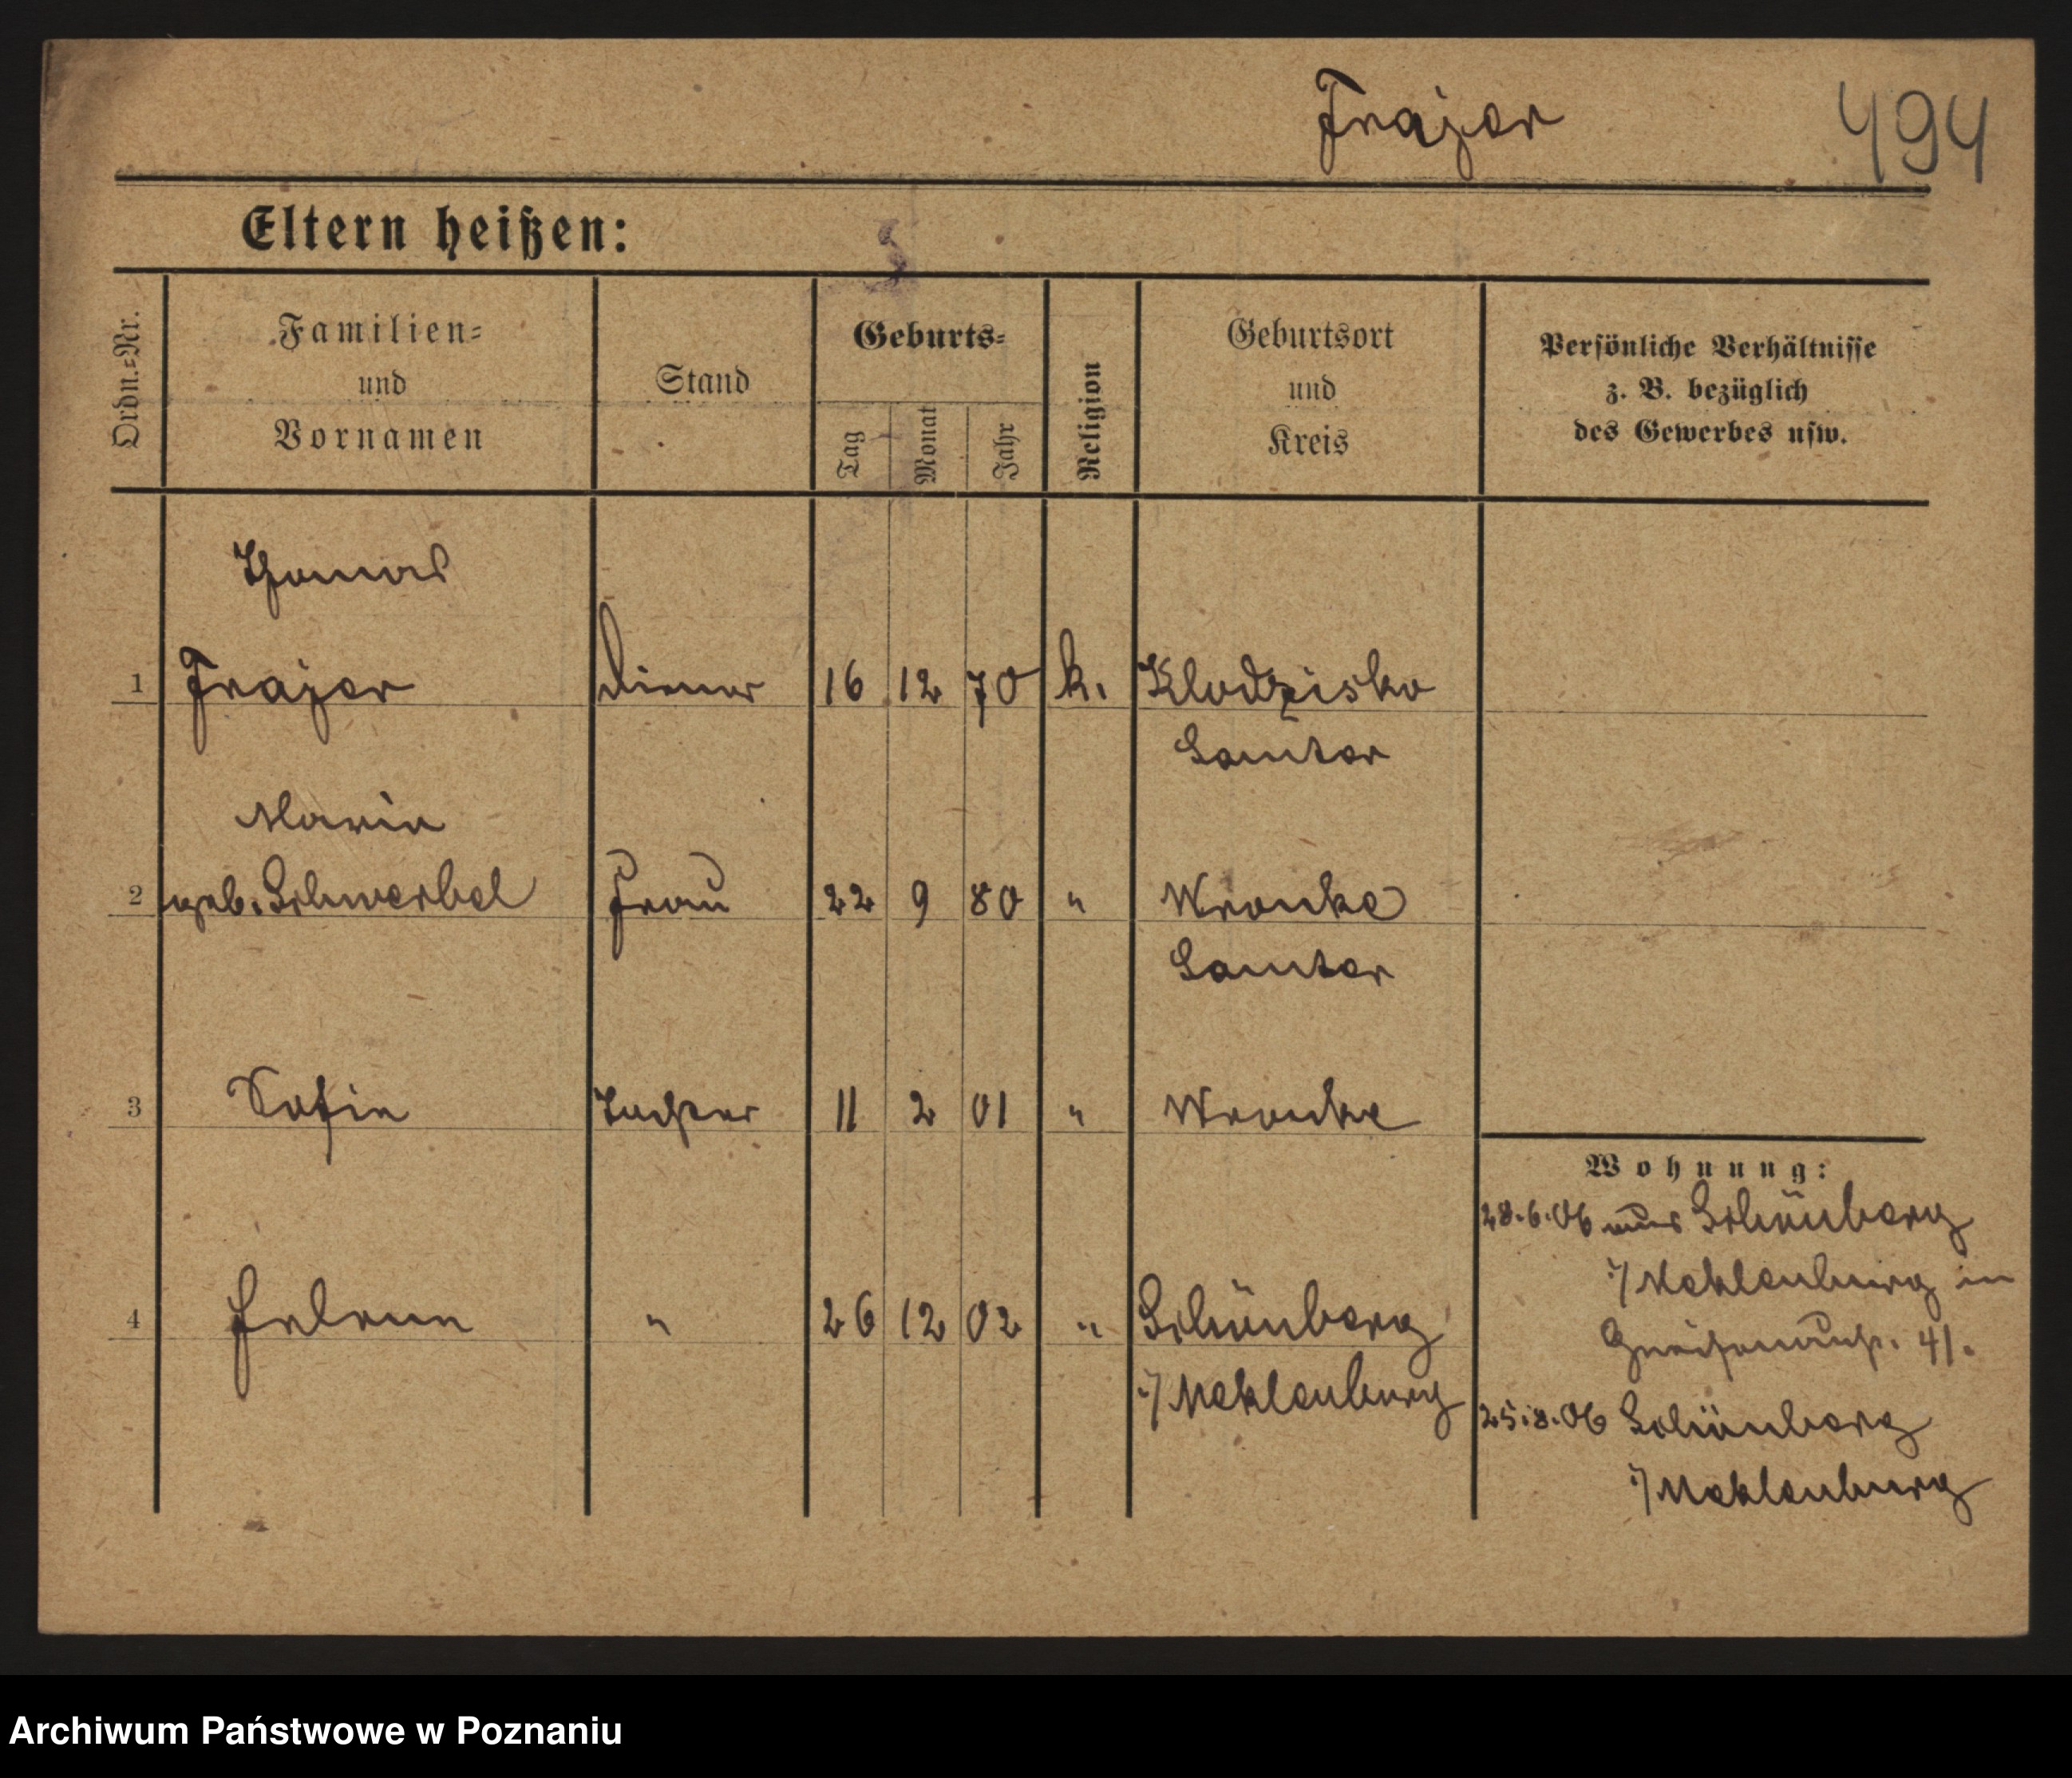 Frajer 494
Eltern heißen:
Ordn.=Nr.
Familien=
und
Vornamen
Stand
Geburts=
Tag
Monat
Jahr
Religion
Geburtsort
und
Kreis
Persönliche Verhältnisse
z. B. bezüglich
des Gewerbes usw.
Thomas
1 Frajer Diener 16 12 70 k. Klodzisko
Samter
Maria
2 geb. Schwerbel Frau 22 9 80 " Wronke
Samter
3 Sofie Tochter 11 2 01 " Wronke
Wohnung:
28.6.06 aus Schönberg
i/Meklenburg in
4 Helene " 26 12 02 " Schönberg
Gneisenaustr. 41.
i/Meklenburg
25.8.06 Schönberg
i/Meklenburg
Archiwum Państwowe w Poznaniu